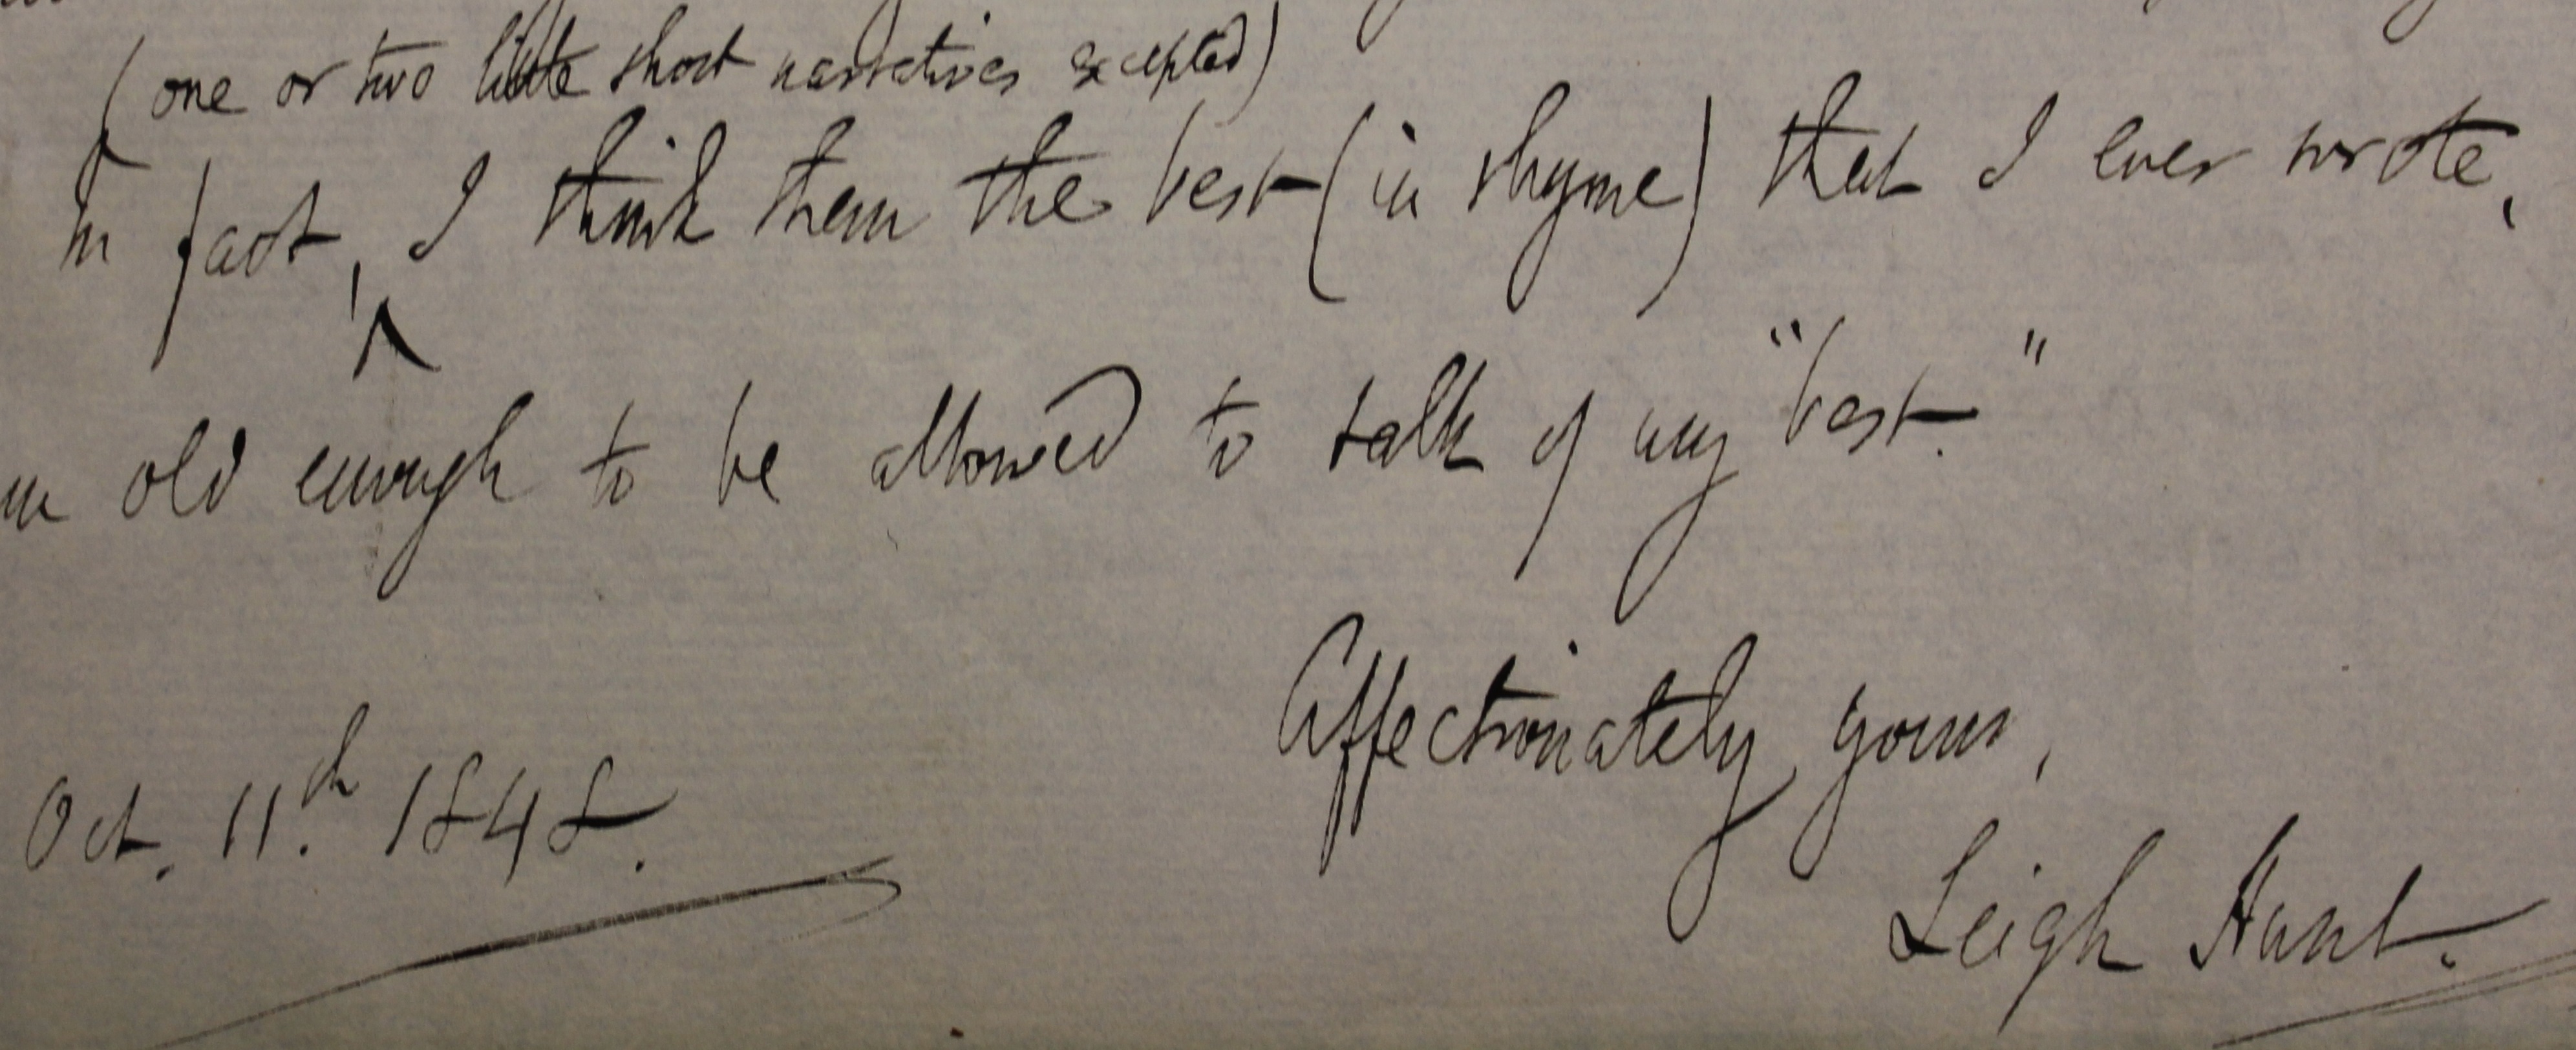 (one or two little short narratives excepted)
In fact, I think them the best (in rhyme) that I ever wrote,
old enough to be allowed to talk of my "best."
Affectionately yours,
Oct. 11.th 1848.
Leigh Hunt.